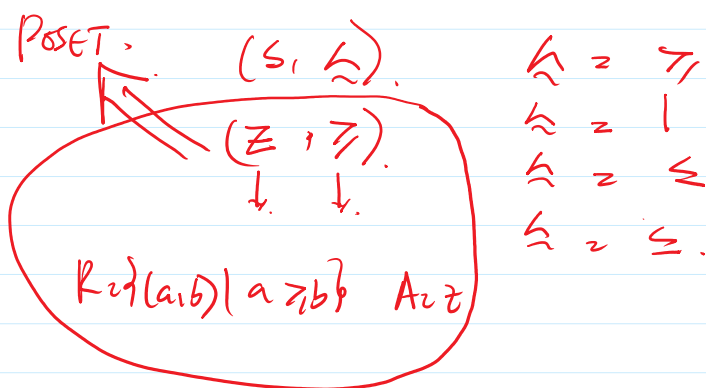 POSET.
(S, ≼).
(Z, ≥).
R = {(a,b) | a ≥ b} A = Z
≼ = ≥
≼ = |
≼ = ≤
≼ = ⊆.